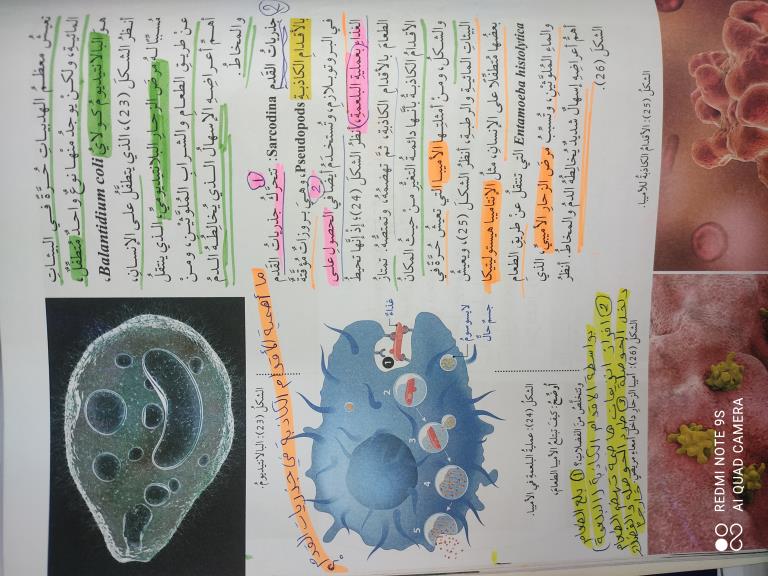 تعيشُ معظمُ الهدبياتِ حُرّةً في البيئاتِ
المائيةِ، ولكنْ يوجدُ منها نوعٌ واحدٌ مُتطفّلٌ،
هو البالانتيديوم كولاي Balantidium coli،
أنظرُ الشكلَ (23)، الذي يتطفّلُ على الإنسانِ،
مُسبِّبًا لهُ مرضَ الزحارِ البلانتيديوميِّ، الذي ينتقلُ
عن طريقِ الطعامِ والشرابِ الملوّثَيْنِ، ومنْ
أهمِّ أعراضِهِ الإسهالُ الذي يُخالطُهُ الدمُ
والمخاطُ.
② جذرياتُ القدمِ Sarcodina: تتحرّكُ جذرياتُ القدمِ
بالأقدامِ الكاذبةِ Pseudopods، وهيَ بروزاتٌ مؤقتةٌ
في البروتوبلازمِ، وتُستخدَمُ أيضًا في الحصولِ على
الغذاءِ بعمليةِ البلعمةِ، أنظرُ الشكلَ (24)؛ إذْ إنّها تحيطُ
الطعامَ بالأقدامِ الكاذبةِ، ثمَّ تهضمُهُ، وتمتصُّهُ. تمتازُ
الأقدامُ الكاذبةُ بأنّها دائمةُ التغيُّرِ منْ حيثُ المكانُ
والشكلُ، ومنْ أمثلتِها الأميبا التي تعيشُ حُرّةً في
البيئاتِ المائيةِ والرطبةِ، أنظرُ الشكلَ (25)، ويعيشُ
بعضُها متطفّلًا على الإنسانِ، مثلُ الإنتاميبا هيستوليتيكا
Entamoeba histolytica التي تنتقلُ عنْ طريقِ الطعامِ
والماءِ الملوّثَيْنِ، وتُسبِّبُ مرضَ الزحارِ الأميبيِّ، الذي
أهمُّ أعراضِهِ إسهالٌ شديدٌ يُخالطُهُ الدمُ والمخاطُ. أنظرُ
الشكلَ (26).
الشكلُ (25): الأقدامُ الكاذبةُ للأميبا.
الشكلُ (23): البالانتيديوم.
ما أهمية الأقدام الكاذبة في جذريات القدم
غذاءٌ
لايسوسومٌ
جسمٌ حالٌّ
1
2
3
4
5
الشكلُ (24): عمليةُ البلعمةِ في الأميبا.
أوضّحُ: كيفَ تبتلعُ الأميبا الطعامَ،
وتتخلّصُ منَ الفضلاتِ؟
① بلع الطعام
بواسطة الأقدام الكاذبة (البلعمة)
② افراز انزيمات هاضمة تهضم الطعام
داخل الحوصلة ③ طرد الحوصلة الفضلات
الشكلُ (26): أميبا الزحارِ داخلَ أمعاءِ مريضٍ.
REDMI NOTE 9S
AI QUAD CAMERA